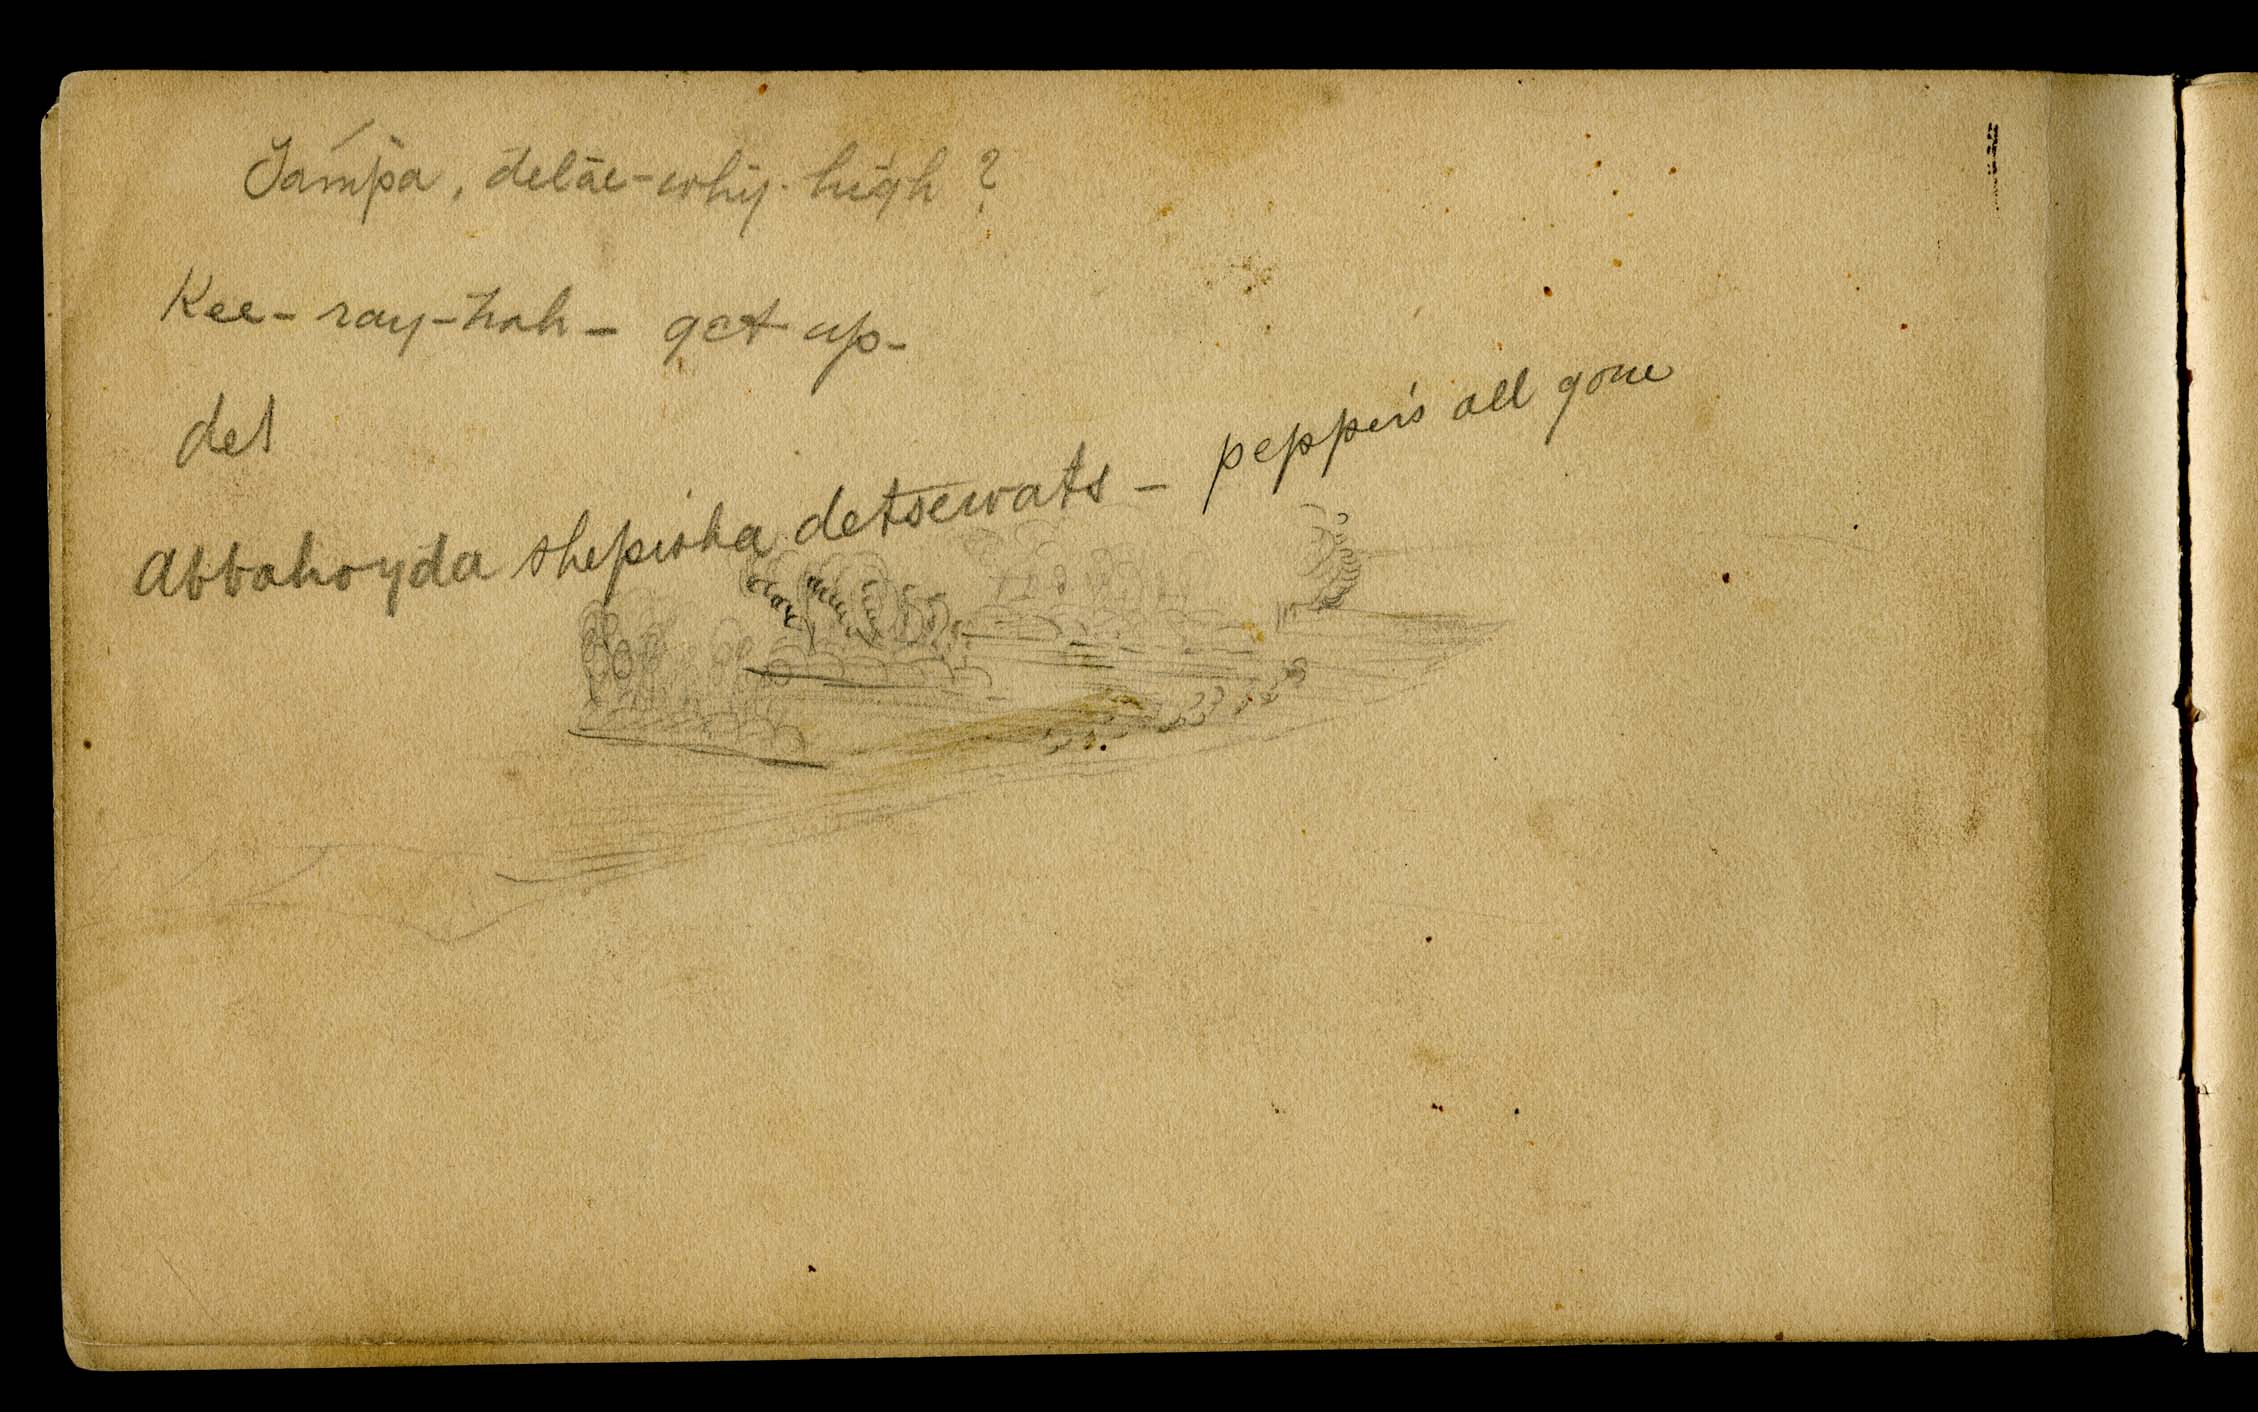 Támpa, delae-why-high?
Kee-ray-hah - get up-
det
Abbahoyda shepisha detsewats - pepper's all gone